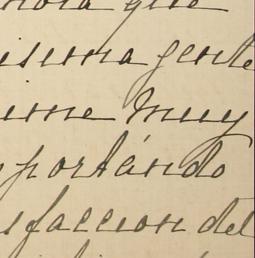 que
isima gente
ume muy
portándo
sfaccion del